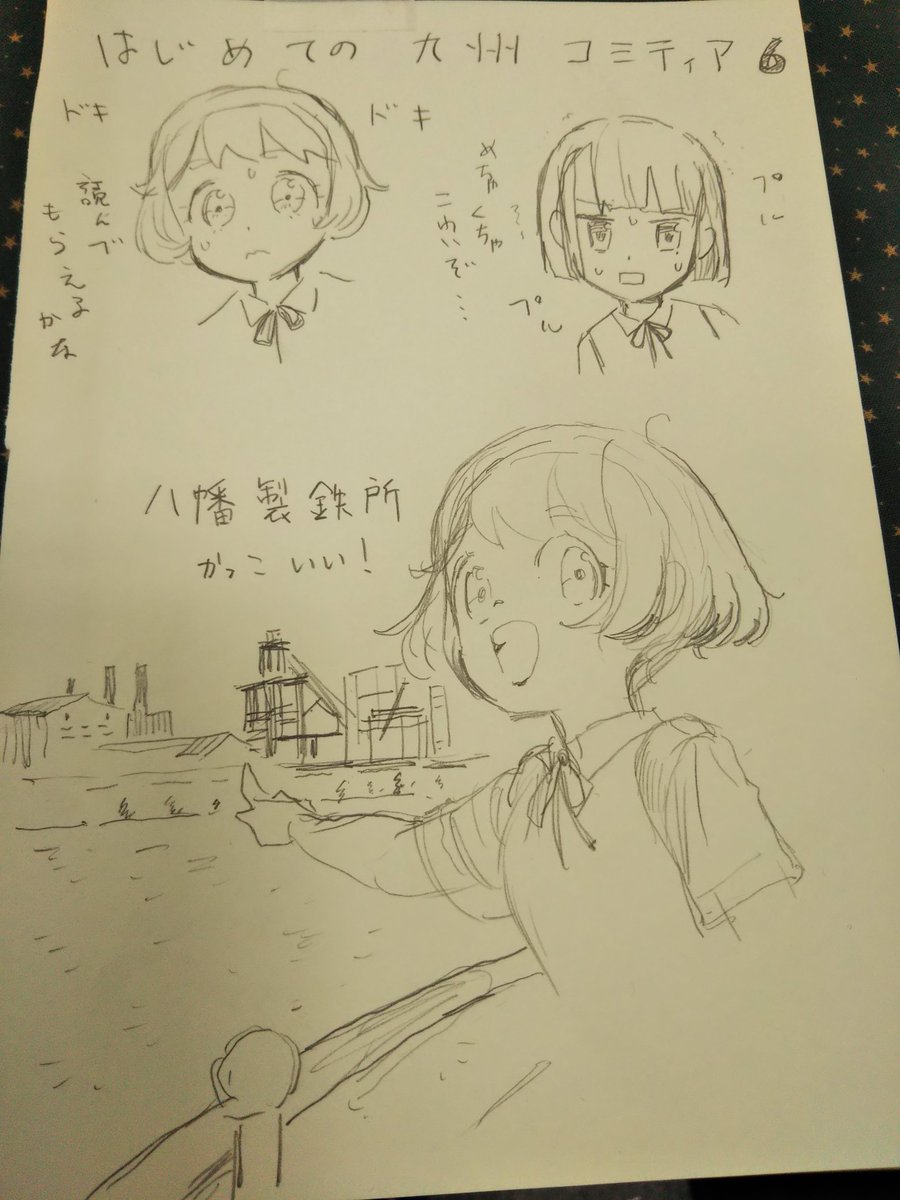 はじめての 九州 コミティア6
ドキ
ドキ
読んで
もらえる
かな
めちゃくちゃ
こわいぞ…
プル
プル
八幡製鉄所
かっこいい!